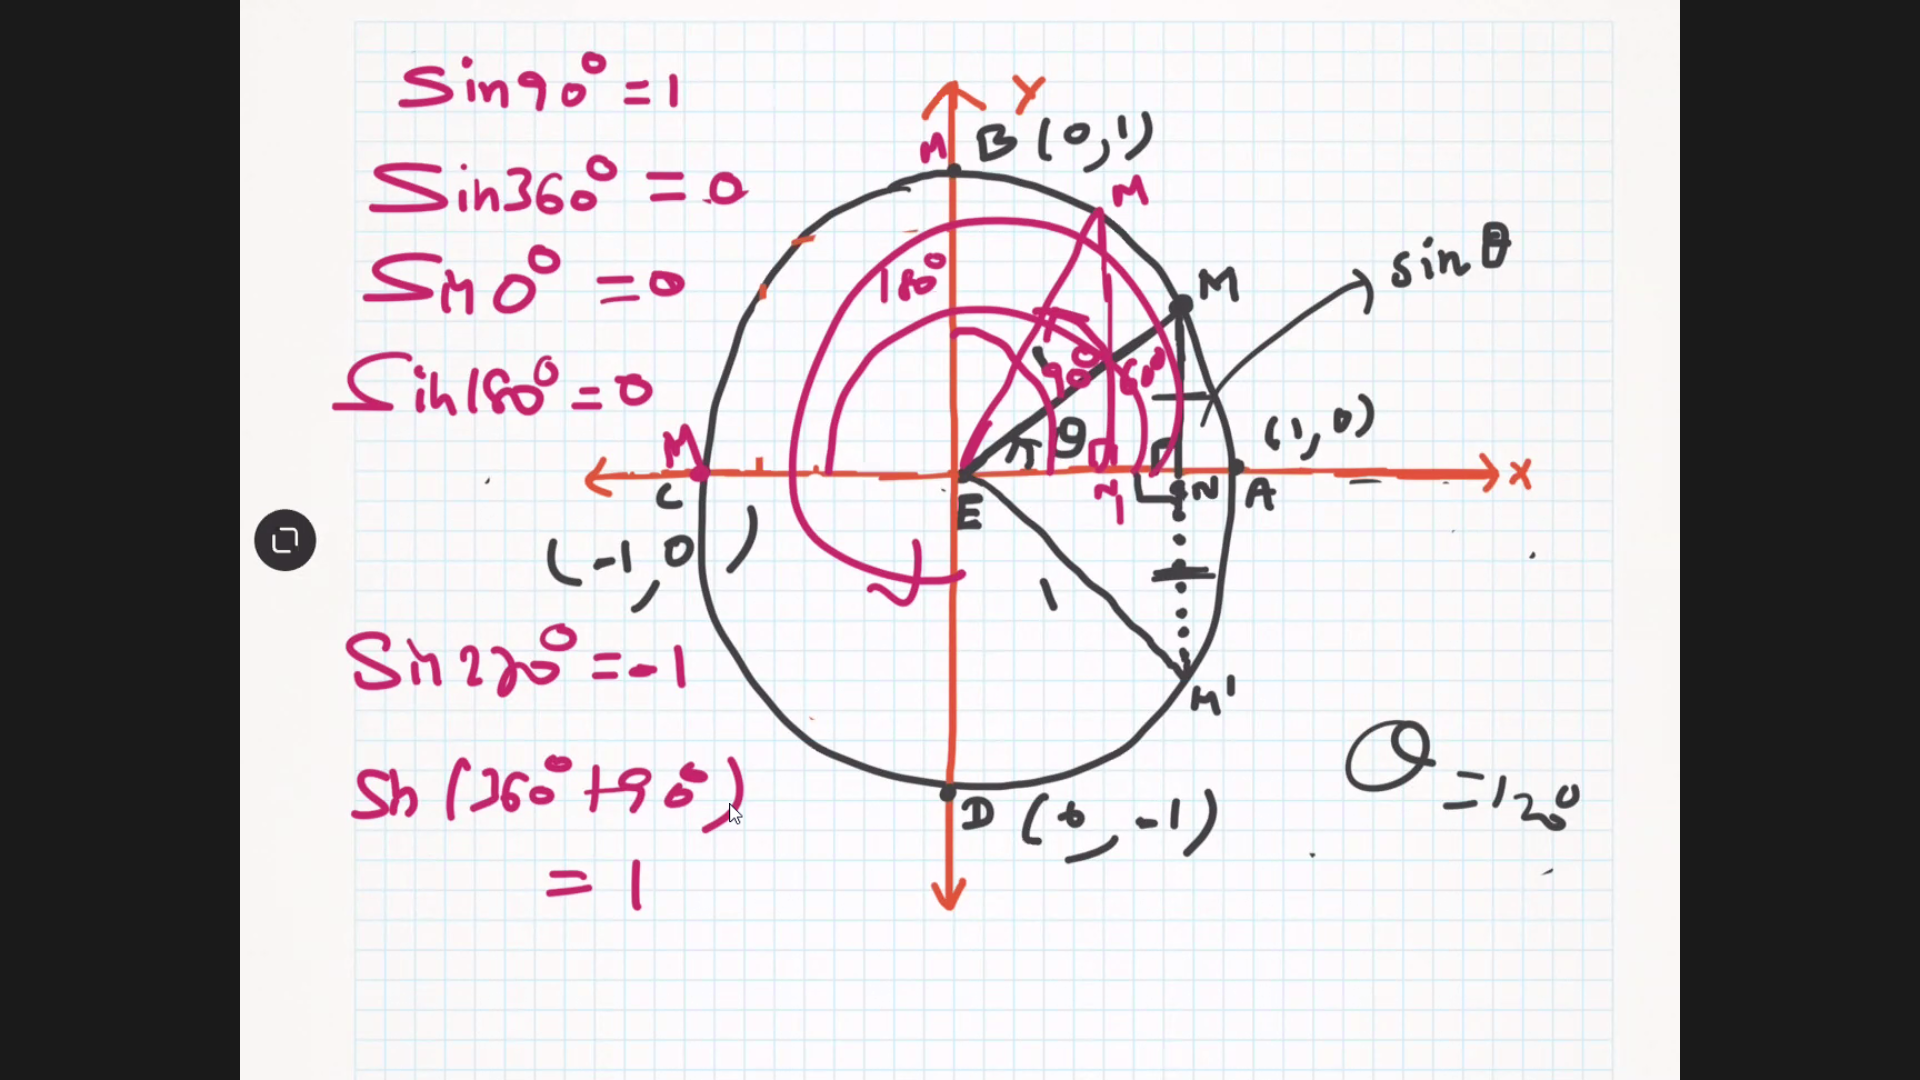 Sin90°=1
Sin360°=0
Sin0°=0
Sin180°=0
Sin270°=-1
Sin(360°+90°)
=1
Y
M
B(0,1)
M
M
sinθ
180°
1
90°
60°
θ
(1,0)
M
C
E
N
N
A
X
(-1,0)
1
M'
D(0,-1)
θ=120°